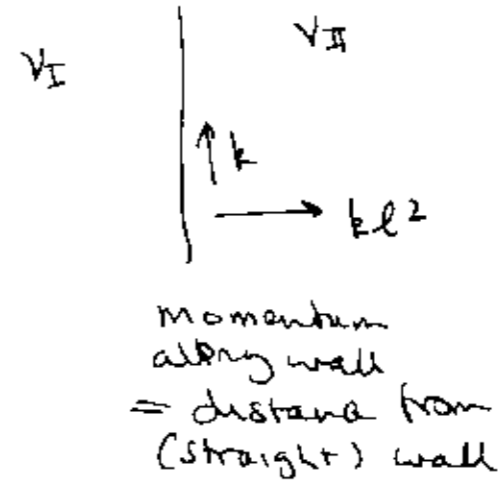 ν_I
ν_II
k
kℓ²
momentum
along wall
= distance from
(straight) wall